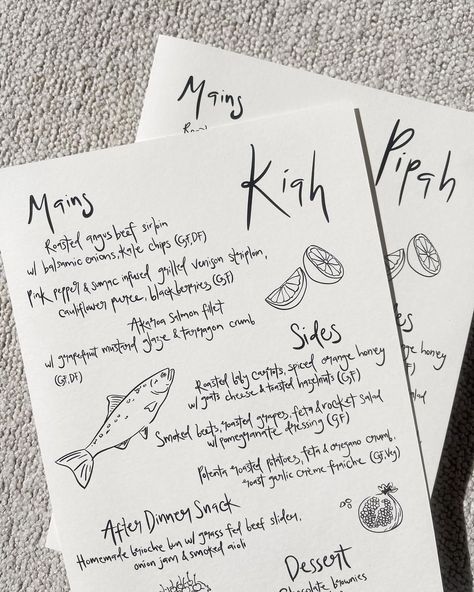 Mains
Roa
Pipah
es
honey
(GF)
alad
Kiah
Mains
Roasted angus beef sirloin
w/ balsamic onions, kale chips (GF, DF)
Pink pepper & sumac infused grilled venison striploin,
cauliflower puree, blackberries (GF)
Akaroa salmon filet
w/ grapefruit mustard glaze & tarragon crumb
(GF, DF)
Sides
Roasted baby carrots, spiced orange honey
w/ goats cheese & toasted hazelnuts (GF)
Smoked beets, roasted grapes, feta & rocket salad
w/ pomegranate dressing (GF)
Polenta roasted potatoes, feta & oregano crumb,
roast garlic crème fraiche (GF, Veg)
After Dinner Snack
Homemade brioche bun w/ grass fed beef slider,
onion jam & smoked aioli
Dessert
Chocolate brownies